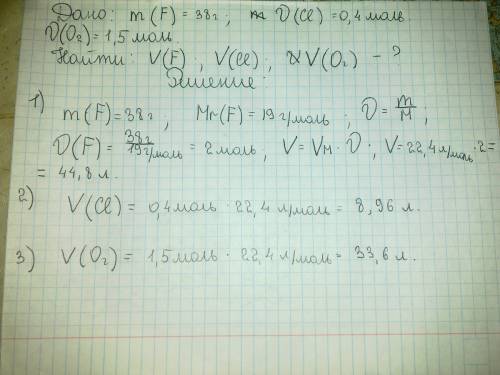 Дано: m(F) = 38г; ν(Cl) = 0,4 моль.
ν(O₂) = 1,5 моль.
Найти: V(F), V(Cl), V(O₂) - ?
Решение:
1) m(F) = 38г, Mr(F) = 19 г/моль; ν = m/M;
ν(F) = 38г/19г/моль = 2 моль, V = Vм · ν; V = 22,4 л/моль · 2 =
= 44,8 л.
2) V(Cl) = 0,4 моль · 22,4 л/моль = 8,96 л.
3) V(O₂) = 1,5 моль · 22,4 л/моль = 33,6 л.